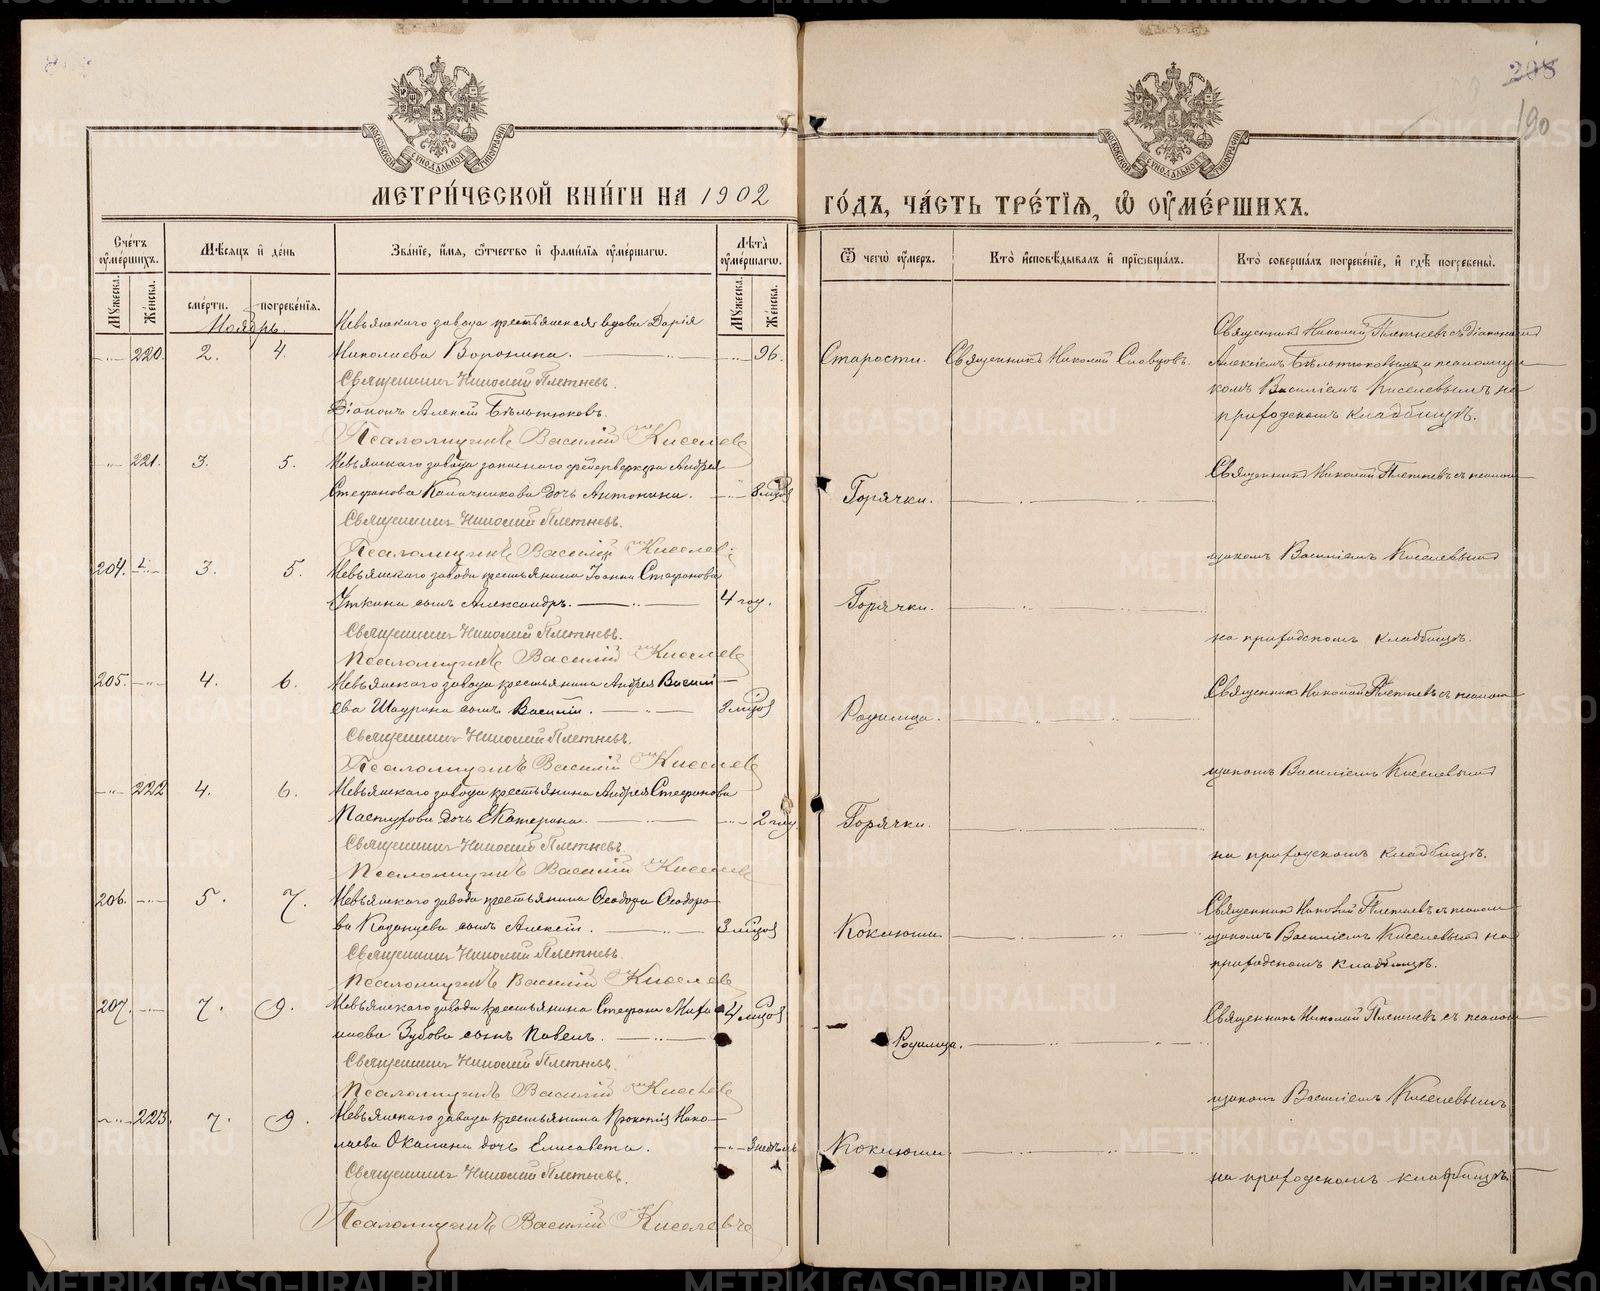 208
190
МЕТРИ́ЧЕСКОЙ КНИ́ГИ НА 1902
ГО́ДЪ, ЧА́СТЬ ТРЕ́ТІѦ, Ѡ҆ ОУ҆МЕ́РШИХЪ.
Сче́тъ оу҆ме́ршихъ.
Мѣ́сѧцъ и҆ де́нь
Зва́нїе, и҆́мѧ, ѻ҆́тчество и҆ фами́лїѧ оу҆ме́ршагѡ.
Лѣ́та оу҆ме́ршагѡ.
Ѿ чегѡ̀ оу҆́меръ.
Кто̀ и҆сповѣ́дывалъ и҆ прїѡбща́лъ.
Кто̀ соверша́лъ погребе́нїе, и҆ гдѣ̀ погребены̀.
Мꙋ́жеска.
Же́нска.
сме́рти.
погребе́нїѧ.
Мꙋ́жеска.
Же́нска.
Ноябрь.
Невьянскаго завода крестьянская вдова Дарія
220. 2. 4. Николаева Воронина. 96.
Священникъ Николай Плетневъ.
Діаконъ Алексій Бѣльтюковъ.
Псаломщикъ Василій Киселев
Старости. Священникъ Николай Словцовъ.
Священникъ Николай Плетневъ съ діакономъ
Алексіемъ Бѣльтюковымъ и псаломщи-
комъ Василіемъ Киселевымъ на
приходскомъ кладбищѣ.
221. 3. 5. Невьянскаго завода запаснаго фейерверкера Андрея
Стефанова Калачникова дочь Антонина. 8 мцов
Священникъ Николай Плетневъ.
Псаломщикъ Василій Киселев
Горячки.
Священникъ Николай Плетневъ съ псалом-
щикомъ Василіемъ Киселевымъ
204. 3. 5. Невьянскаго завода крестьянина Іоанна Стефанова
Уткина сынъ Александръ. 4 год.
Священникъ Николай Плетневъ.
Псаломщикъ Василій Киселев
Горячки.
на приходскомъ кладбищѣ.
205. 4. 6. Невьянскаго завода крестьянина Андрея Василі-
ева Шаурина сынъ Василій. 8 мцов
Священникъ Николай Плетневъ.
Псаломщикъ Василій Киселев
Родимца.
Священникъ Николай Плетневъ съ псалом-
щикомъ Василіемъ Киселевымъ
222 4. 6. Невьянскаго завода крестьянина Андрея Стефанова
Пастухова дочь Екатерина. 2 год.
Священникъ Николай Плетневъ.
Псаломщикъ Василій Киселев
Горячки.
на приходскомъ кладбищѣ.
206. 5. 7. Невьянскаго завода крестьянина Ѳеодора Ѳеодоро-
ва Казанцева сынъ Алексій. 3 мцов
Священникъ Николай Плетневъ.
Псаломщикъ Василій Киселев
Коклюша
Священникъ Николай Плетневъ съ псалом-
щикомъ Василіемъ Киселевымъ на
приходскомъ кладбищѣ.
207. 7. 9. Невьянскаго завода крестьянина Стефана Миха-
илова Зубова сынъ Павелъ. 4 мцов
Священникъ Николай Плетневъ.
Псаломщикъ Василій Киселев
Родимца.
Священникъ Николай Плетневъ съ псалом-
щикомъ Василіемъ Киселевымъ
223. 7. 9. Невьянскаго завода крестьянина Прокопія Нико-
лаева Окалина дочь Елисавета. 3 недѣль
Священникъ Николай Плетневъ.
Псаломщикъ Василій Киселевъ
Коклюша
на приходскомъ кладбищѣ.
METRIKI.GASO-URAL.RU